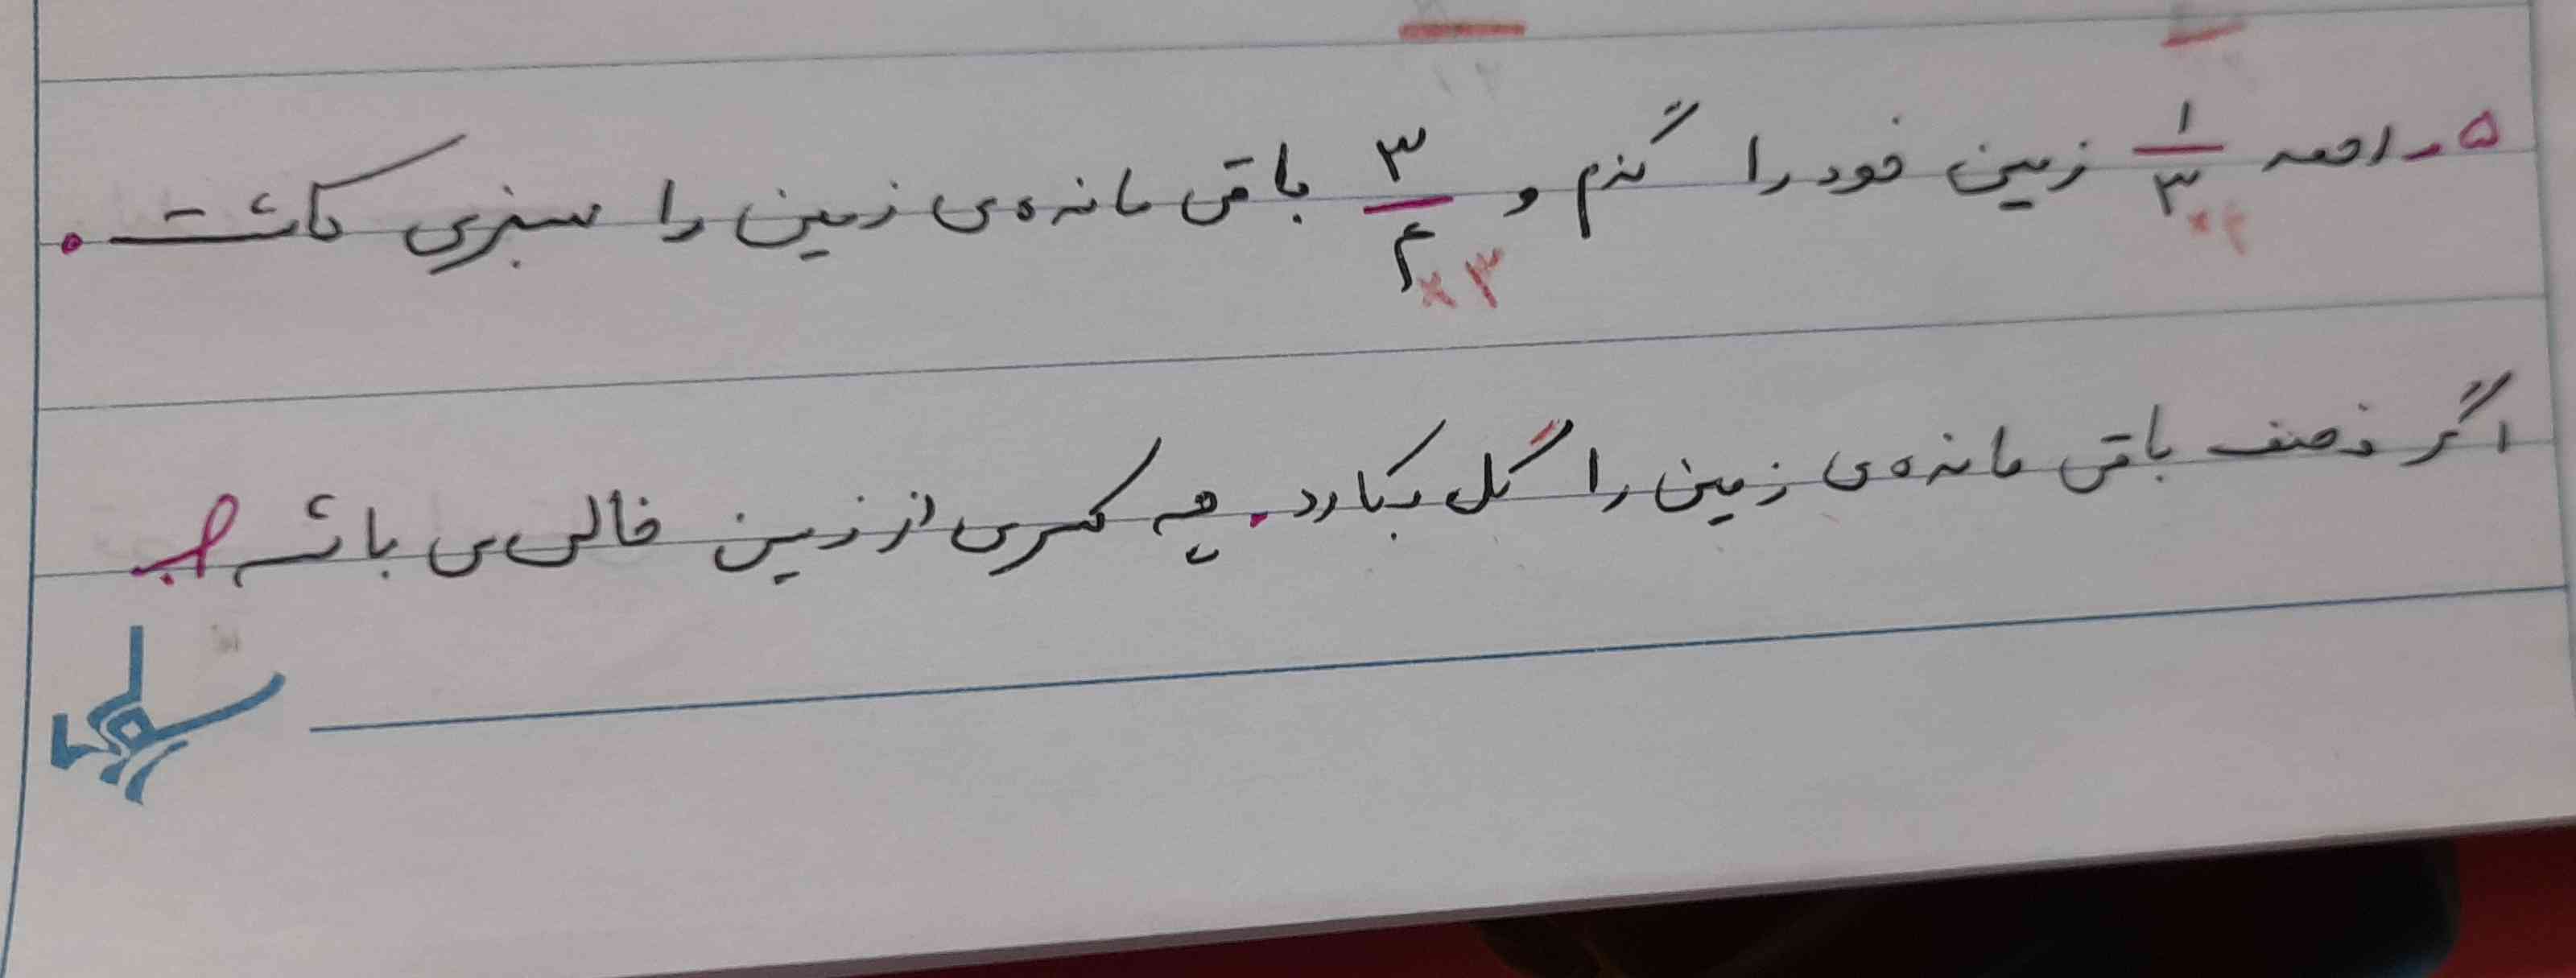 ۵- احمد ۱/۳ زمین خود را گندم و ۳/۴ باقی مانده ی زمین را سبزی کاشت.
×۴
×۳
اگر نصف باقی مانده ی زمین را گل بکارد. چه کسری از زمین خالی می باشد؟